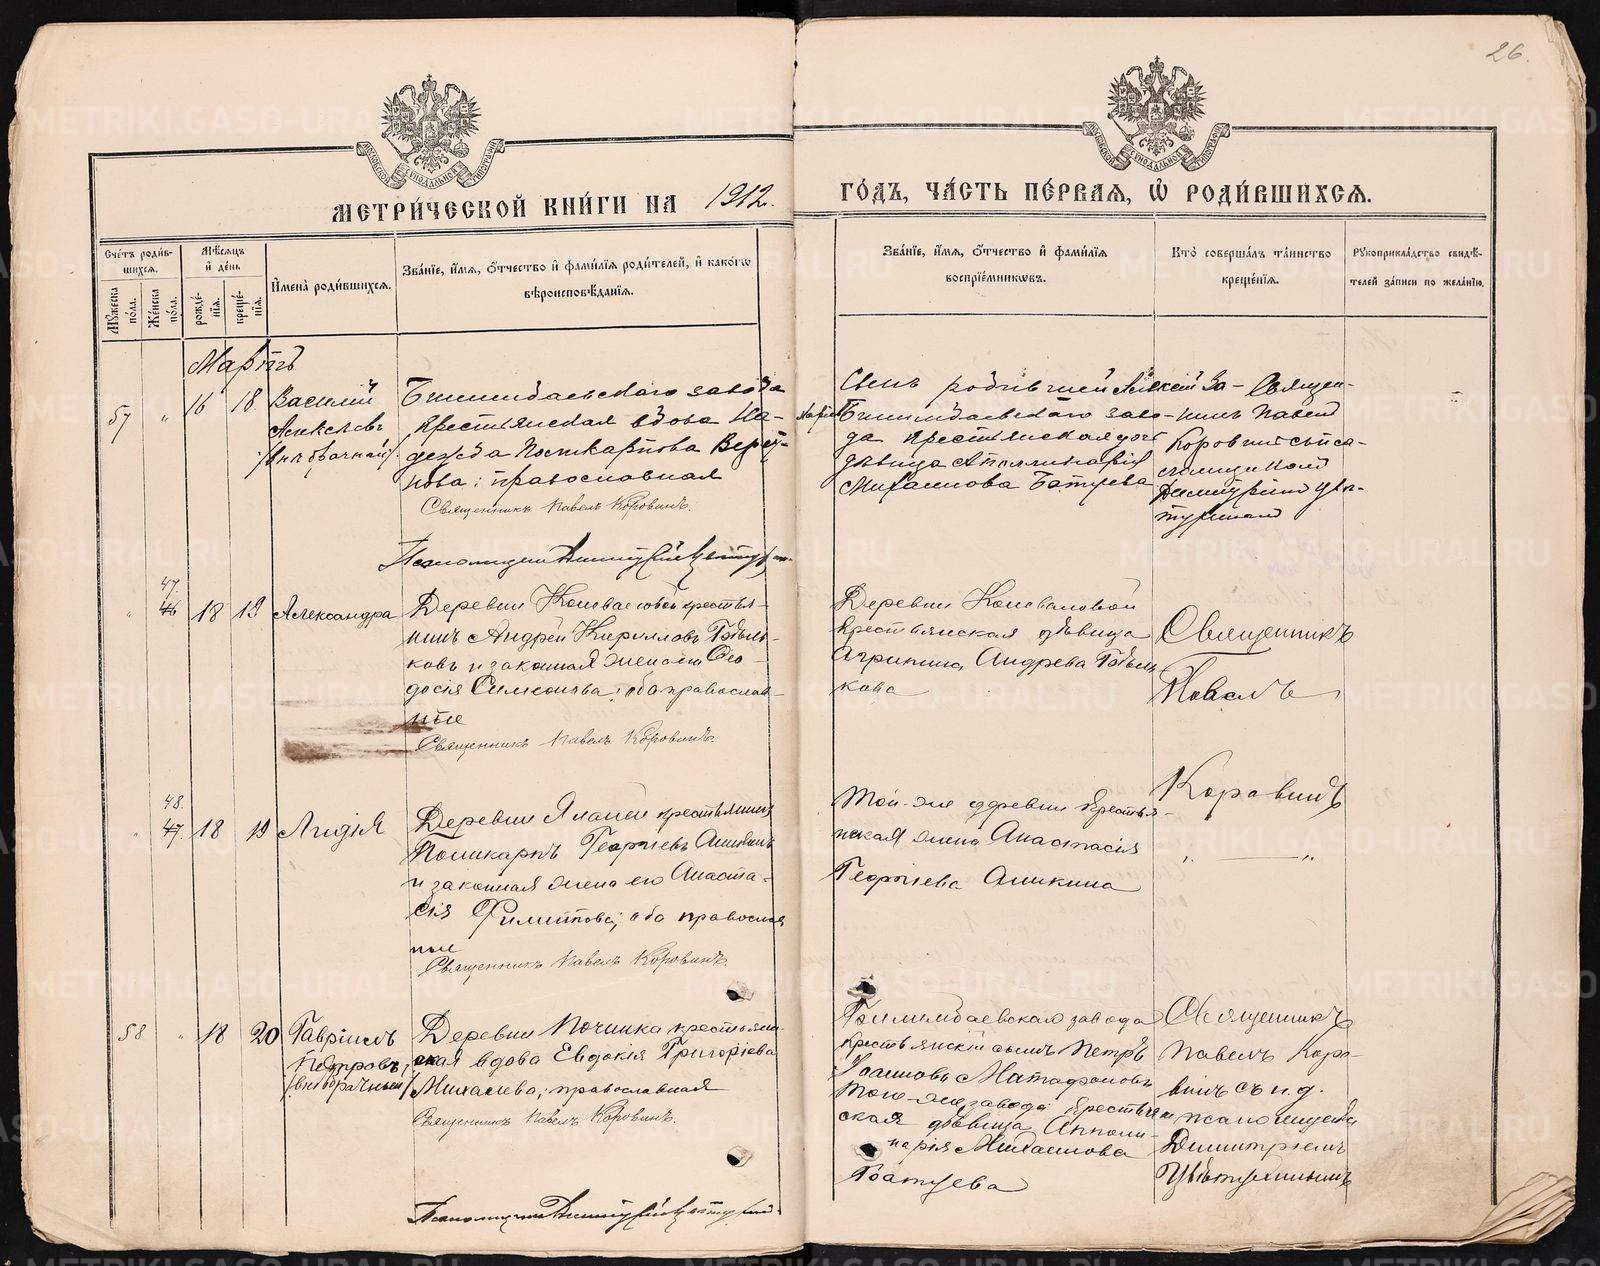 26.
МЕТРИ́ЧЕСКОЙ КНИ́ГИ НА 1912.
ГО́ДЪ, ЧА́СТЬ ПЕ́РВАЯ, Ѡ РОДИ́ВШИХСЯ.
Сче́тъ роди́в-
шихся.
Мꙋ́жеска по́ла.
Же́нска по́ла.
Мѣ́сяцъ
и де́нь
рожде́-
нїя.
креще́-
нїя.
И́мена роди́вшихся.
Зва́нїе, и́мя, ѻ́тчество и фами́лїя роди́телей, и како́гѡ
вѣроисповѣ́данїя.
Зва́нїе, и́мя, ѻ́тчество и фами́лїя
воспрїе́мникѡвъ.
Кто̀ соверша́лъ та́инство
креще́нїя.
Рꙋкоприкла́дство свидѣ́-
телей за́писи по жела́нїю.
Мартъ
57 " 16 18
Василій
Алексѣевъ
/внѣбрачный/
Билимбаевскаго завода
крестьянская вдова На-
дежда Поликарпова
нова; православная
Священникъ Павелъ Коровинъ.
Сынъ родившей Алексій
Билимбаевскаго заво-
да крестьянская дочь
дѣвица Аполлинарія
Михаилова Батуева
Священ-
никъ Павелъ
Коровинъ съ пса-
ломщикомъ
Димитріемъ Цвѣ-
Псаломщикъ Димитрій
47
46
" 18 19 Александра
Деревни Коноваловой крестья-
нинъ Андрей Кирилловъ
ковъ и законная жена его Ѳео-
досія Симеонова; оба православ-
ные
Священникъ Павелъ Коровинъ.
Деревни Коноваловой
крестьянская дѣвица
Агрипина Андреева
кова
Священникъ
Павелъ
Коровинъ
48
47
" 18 19 Лидія
Деревни крестьянинъ
Поликарпъ Георгіевъ Аникинъ
и законная жена его Анаста-
сія Филиппова; оба православ
ные
Священникъ Павелъ Коровинъ.
Той-же деревни крестья-
нская жена Анастасія
Георгіева Аникина
" — "
58 " 18 20
Гавріилъ
Петровъ
/внѣбрачный/
Деревни Починка крестьян-
ская вдова Евдокія Григоріева
Михалева; православная
Священникъ Павелъ Коровинъ.
Билимбаевскаго завода
крестьянскій сынъ Петръ
Іоанновъ Матафоновъ
того-же завода крестьян
ская дѣвица Апполи-
нарія Михаилова
Батуева
Священникъ
Павелъ Коро-
винъ съ и.д.
псаломщика
Димитріемъ
Псаломщикъ Димитрій